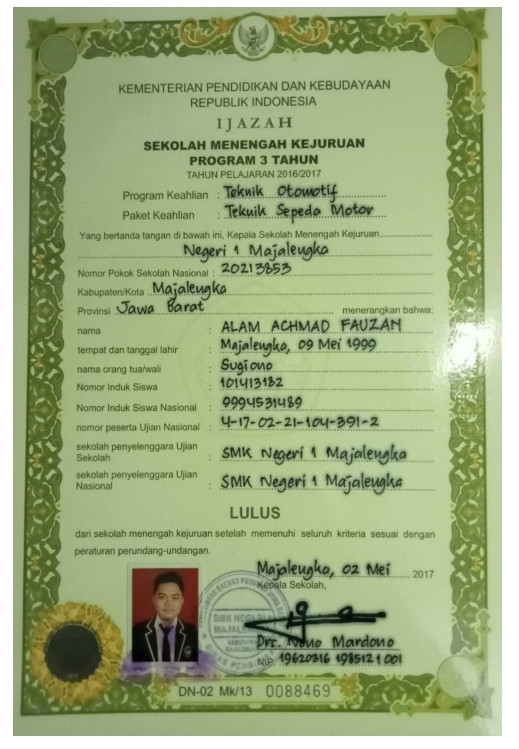 KEMENTERIAN PENDIDIKAN DAN KEBUDAYAAN
REPUBLIK INDONESIA
IJAZAH
SEKOLAH MENENGAH KEJURUAN
PROGRAM 3 TAHUN
TAHUN PELAJARAN 2016/2017
Program Keahlian : Teknik Otomotif
Paket Keahlian : Teknik Sepeda Motor
Yang bertanda tangan di bawah ini, Kepala Sekolah Menengah Kejuruan
Negeri 1 Majalengka
Nomor Pokok Sekolah Nasional : 20213853
Kabupaten/Kota Majalengka
Provinsi Jawa Barat menerangkan bahwa:
nama : ALAM ACHMAD FAUZAN
tempat dan tanggal lahir : Majalengka, 09 Mei 1999
nama orang tua/wali : Sugiono
Nomor Induk Siswa : 101413182
Nomor Induk Siswa Nasional : 9994531489
nomor peserta Ujian Nasional : 4-17-02-21-104-391-2
sekolah penyelenggara Ujian
Sekolah : SMK Negeri 1 Majalengka
sekolah penyelenggara Ujian
Nasional : SMK Negeri 1 Majalengka
LULUS
dari sekolah menengah kejuruan setelah memenuhi seluruh kriteria sesuai dengan
peraturan perundang-undangan.
Majalengka, 02 Mei 2017
Kepala Sekolah,
SMK NEGERI
Drs. Nono Mardono
NIP 19620316 198512 1 001
DN-02 Mk/13 0088469